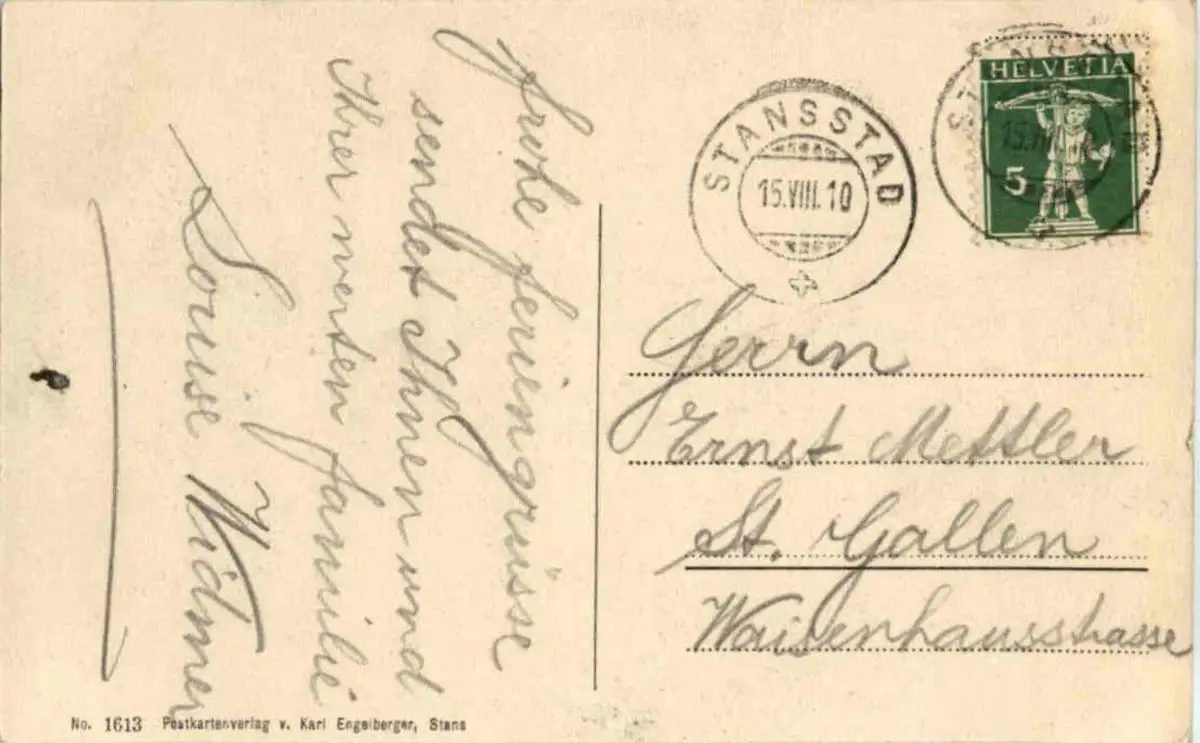 Frohe feriengrüsse
sendet Ihnen und
Ihrer werten familie
Louise Widmer
STANSSTAD
15.VIII.10
STANSSTAD
15.VIII.10
HELVETIA
5
Herrn
Ernst Mettler
St. Gallen
Waisenhausstrasse
No. 1613 Postkartenverlag v. Karl Engelberger, Stans